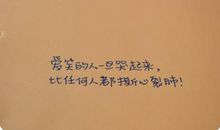 爱笑的人一旦哭起来，
比任何人都撕心裂肺！